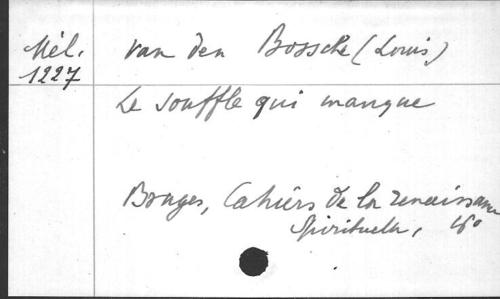 Mél. van den Bossche (Louis)
1227
Le souffle qui manque
Bruges, Cahiers de la renaissance
Spirituelle,